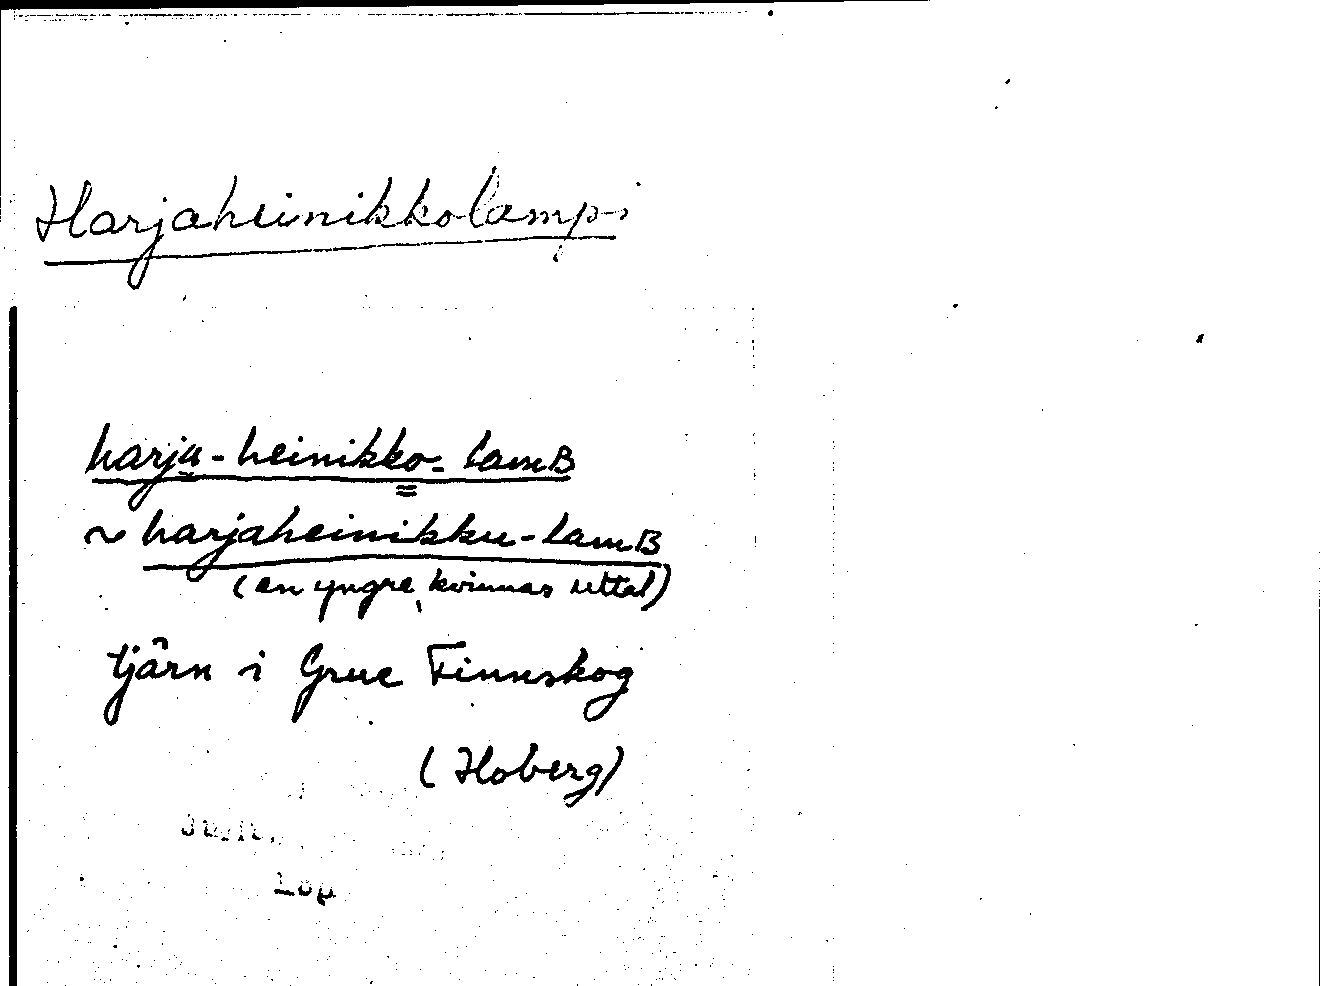 Harjaheinikkolampi
harju-heinikko-lamB
~ harjaheinikku-lamB
(en yngre kvinnas uttal)
tjärn i Grue Finnskog
(Hoberg)